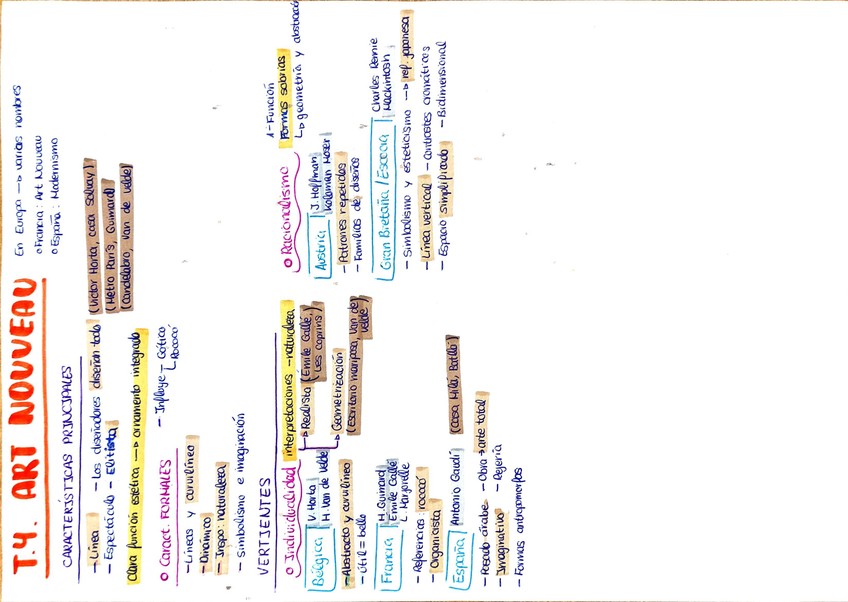 T.4. ART NOUVEAU
En Europa → varios nombres
o Francia: Art Nouveau
o España: Modernismo
CARACTERÍSTICAS PRINCIPALES
- Línea
- Los diseñadores diseñan todo
(Victor Horta, casa Solvay)
- Espectáculo
- Elitista
(Metro París, Guimard)
(Candelabro, van de Velde)
Clara función estética → ornamento integrado
o Caract. FORMALES
- Influye
Gótico
Rococó
- Líneas y curvilíneo
- Dinámico
- Inspo: naturaleza
- Simbolismo e imaginación
VERTIENTES
o Individualidad
interpretaciones - naturaleza
Realista (Émile Gallé, Les Coprins)
Geometrización
(Escritorio mariposa, Van de Velde)
Bélgica
V. Horta
H. Van de Velde
- Abstracto y curvilíneo
- útil = bello
Francia
H. Guimard
Émile Gallé
L. Marjorelle
- Referencias: rococó
- Organicista
España
Antonio Gaudí
(Casa Milá, Batlló)
- Pasado árabe
- Obra → arte total
- Imaginativo
- Rejería
- Formas antropomorfas
o Racionalismo
1º Función
Formas sobrias
↳ geometría y abstracción
Austria
J. Hoffman
Koloman Moser
- Patrones repetidos
- Familias de diseños
Gran Bretaña / Escocia
Charles Rennie
Mackintosh
- Simbolismo y esteticismo → ref. japonesa
- Línea vertical
- contrastes cromáticos
- Espacio simplificado
- Bidimensional